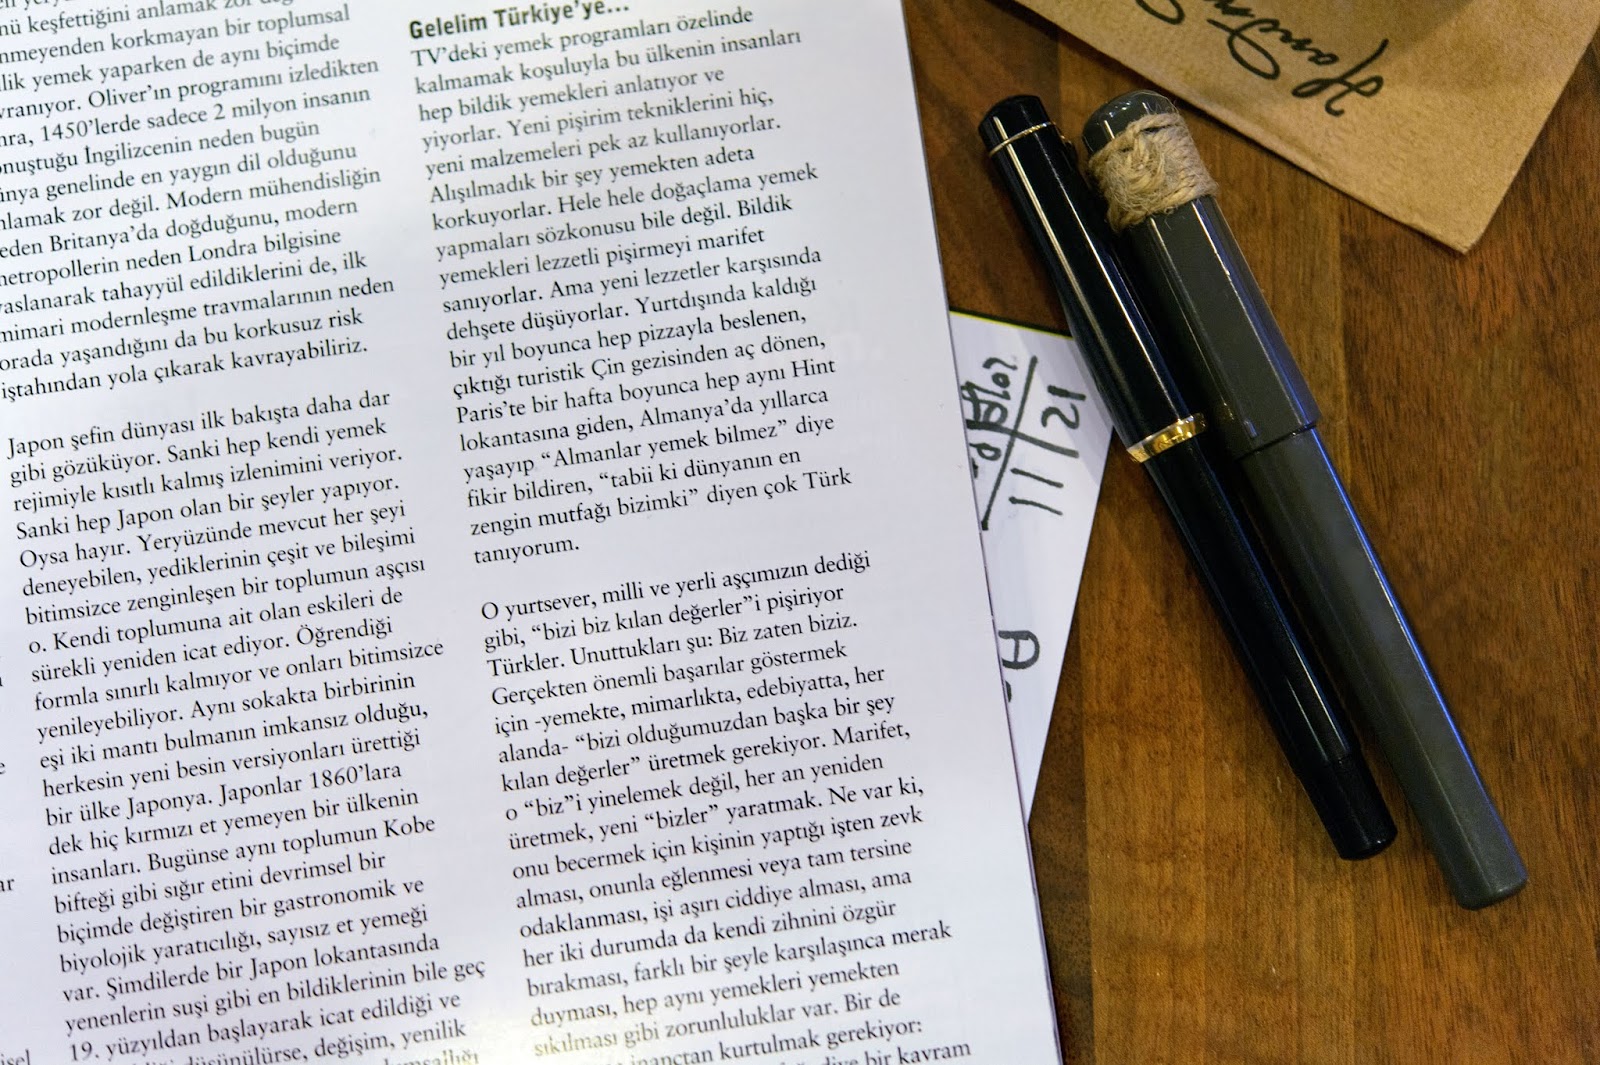 keşfettiğini anlamak zor
korkmayan bir toplumsal
yemek yaparken de aynı biçimde
Oliver’ın programını izledikten
1450’lerde sadece 2 milyon insanın
İngilizcenin neden bugün
genelinde en yaygın dil olduğunu
zor değil. Modern mühendisliğin
Britanya’da doğduğunu, modern
neden Londra bilgisine
tahayyül edildiklerini de, ilk
mimari modernleşme travmalarının neden
orada yaşandığını da bu korkusuz risk
iştahından yola çıkarak kavrayabiliriz.
Japon şefin dünyası ilk bakışta daha dar
gibi gözüküyor. Sanki hep kendi yemek
rejimiyle kısıtlı kalmış izlenimini veriyor.
Sanki hep Japon olan bir şeyler yapıyor.
Oysa hayır. Yeryüzünde mevcut her şeyi
deneyebilen, yediklerinin çeşit ve bileşimi
bitimsizce zenginleşen bir toplumun aşçısı
o. Kendi toplumuna ait olan eskileri de
sürekli yeniden icat ediyor. Öğrendiği
formla sınırlı kalmıyor ve onları bitimsizce
yenileyebiliyor. Aynı sokakta birbirinin
eşi iki mantı bulmanın imkansız olduğu,
herkesin yeni besin versiyonları ürettiği
bir ülke Japonya. Japonlar 1860’lara
dek hiç kırmızı et yemeyen bir ülkenin
insanları. Bugünse aynı toplumun Kobe
bifteği gibi sığır etini devrimsel bir
biçimde değiştiren bir gastronomik ve
biyolojik yaratıcılığı, sayısız et yemeği
var. Şimdilerde bir Japon lokantasında
yenenlerin suşi gibi en bildiklerinin bile geç
19. yüzyıldan başlayarak icat edildiği ve
düşünülürse, değişim, yenilik
Gelelim Türkiye’ye...
TV’deki yemek programları özelinde
kalmamak koşuluyla bu ülkenin insanları
hep bildik yemekleri anlatıyor ve
yiyorlar. Yeni pişirim tekniklerini hiç,
yeni malzemeleri pek az kullanıyorlar.
Alışılmadık bir şey yemekten adeta
korkuyorlar. Hele hele doğaçlama yemek
yapmaları sözkonusu bile değil. Bildik
yemekleri lezzetli pişirmeyi marifet
sanıyorlar. Ama yeni lezzetler karşısında
dehşete düşüyorlar. Yurtdışında kaldığı
bir yıl boyunca hep pizzayla beslenen,
çıktığı turistik Çin gezisinden aç dönen,
Paris’te bir hafta boyunca hep aynı Hint
lokantasına giden, Almanya’da yıllarca
yaşayıp “Almanlar yemek bilmez” diye
fikir bildiren, “tabii ki dünyanın en
zengin mutfağı bizimki” diyen çok Türk
tanıyorum.
O yurtsever, milli ve yerli aşçımızın dediği
gibi, “bizi biz kılan değerler”i pişiriyor
Türkler. Unuttukları şu: Biz zaten biziz.
Gerçekten önemli başarılar göstermek
için -yemekte, mimarlıkta, edebiyatta, her
alanda- “bizi olduğumuzdan başka bir şey
kılan değerler” üretmek gerekiyor. Marifet,
o “biz”i yinelemek değil, her an yeniden
üretmek, yeni “bizler” yaratmak. Ne var ki,
onu becermek için kişinin yaptığı işten zevk
alması, onunla eğlenmesi veya tam tersine
odaklanması, işi aşırı ciddiye alması, ama
her iki durumda da kendi zihnini özgür
bırakması, farklı bir şeyle karşılaşınca merak
duyması, hep aynı yemekleri yemekten
sıkılması gibi zorunluluklar var. Bir de
inançtan kurtulmak gerekiyor:
diye bir kavram